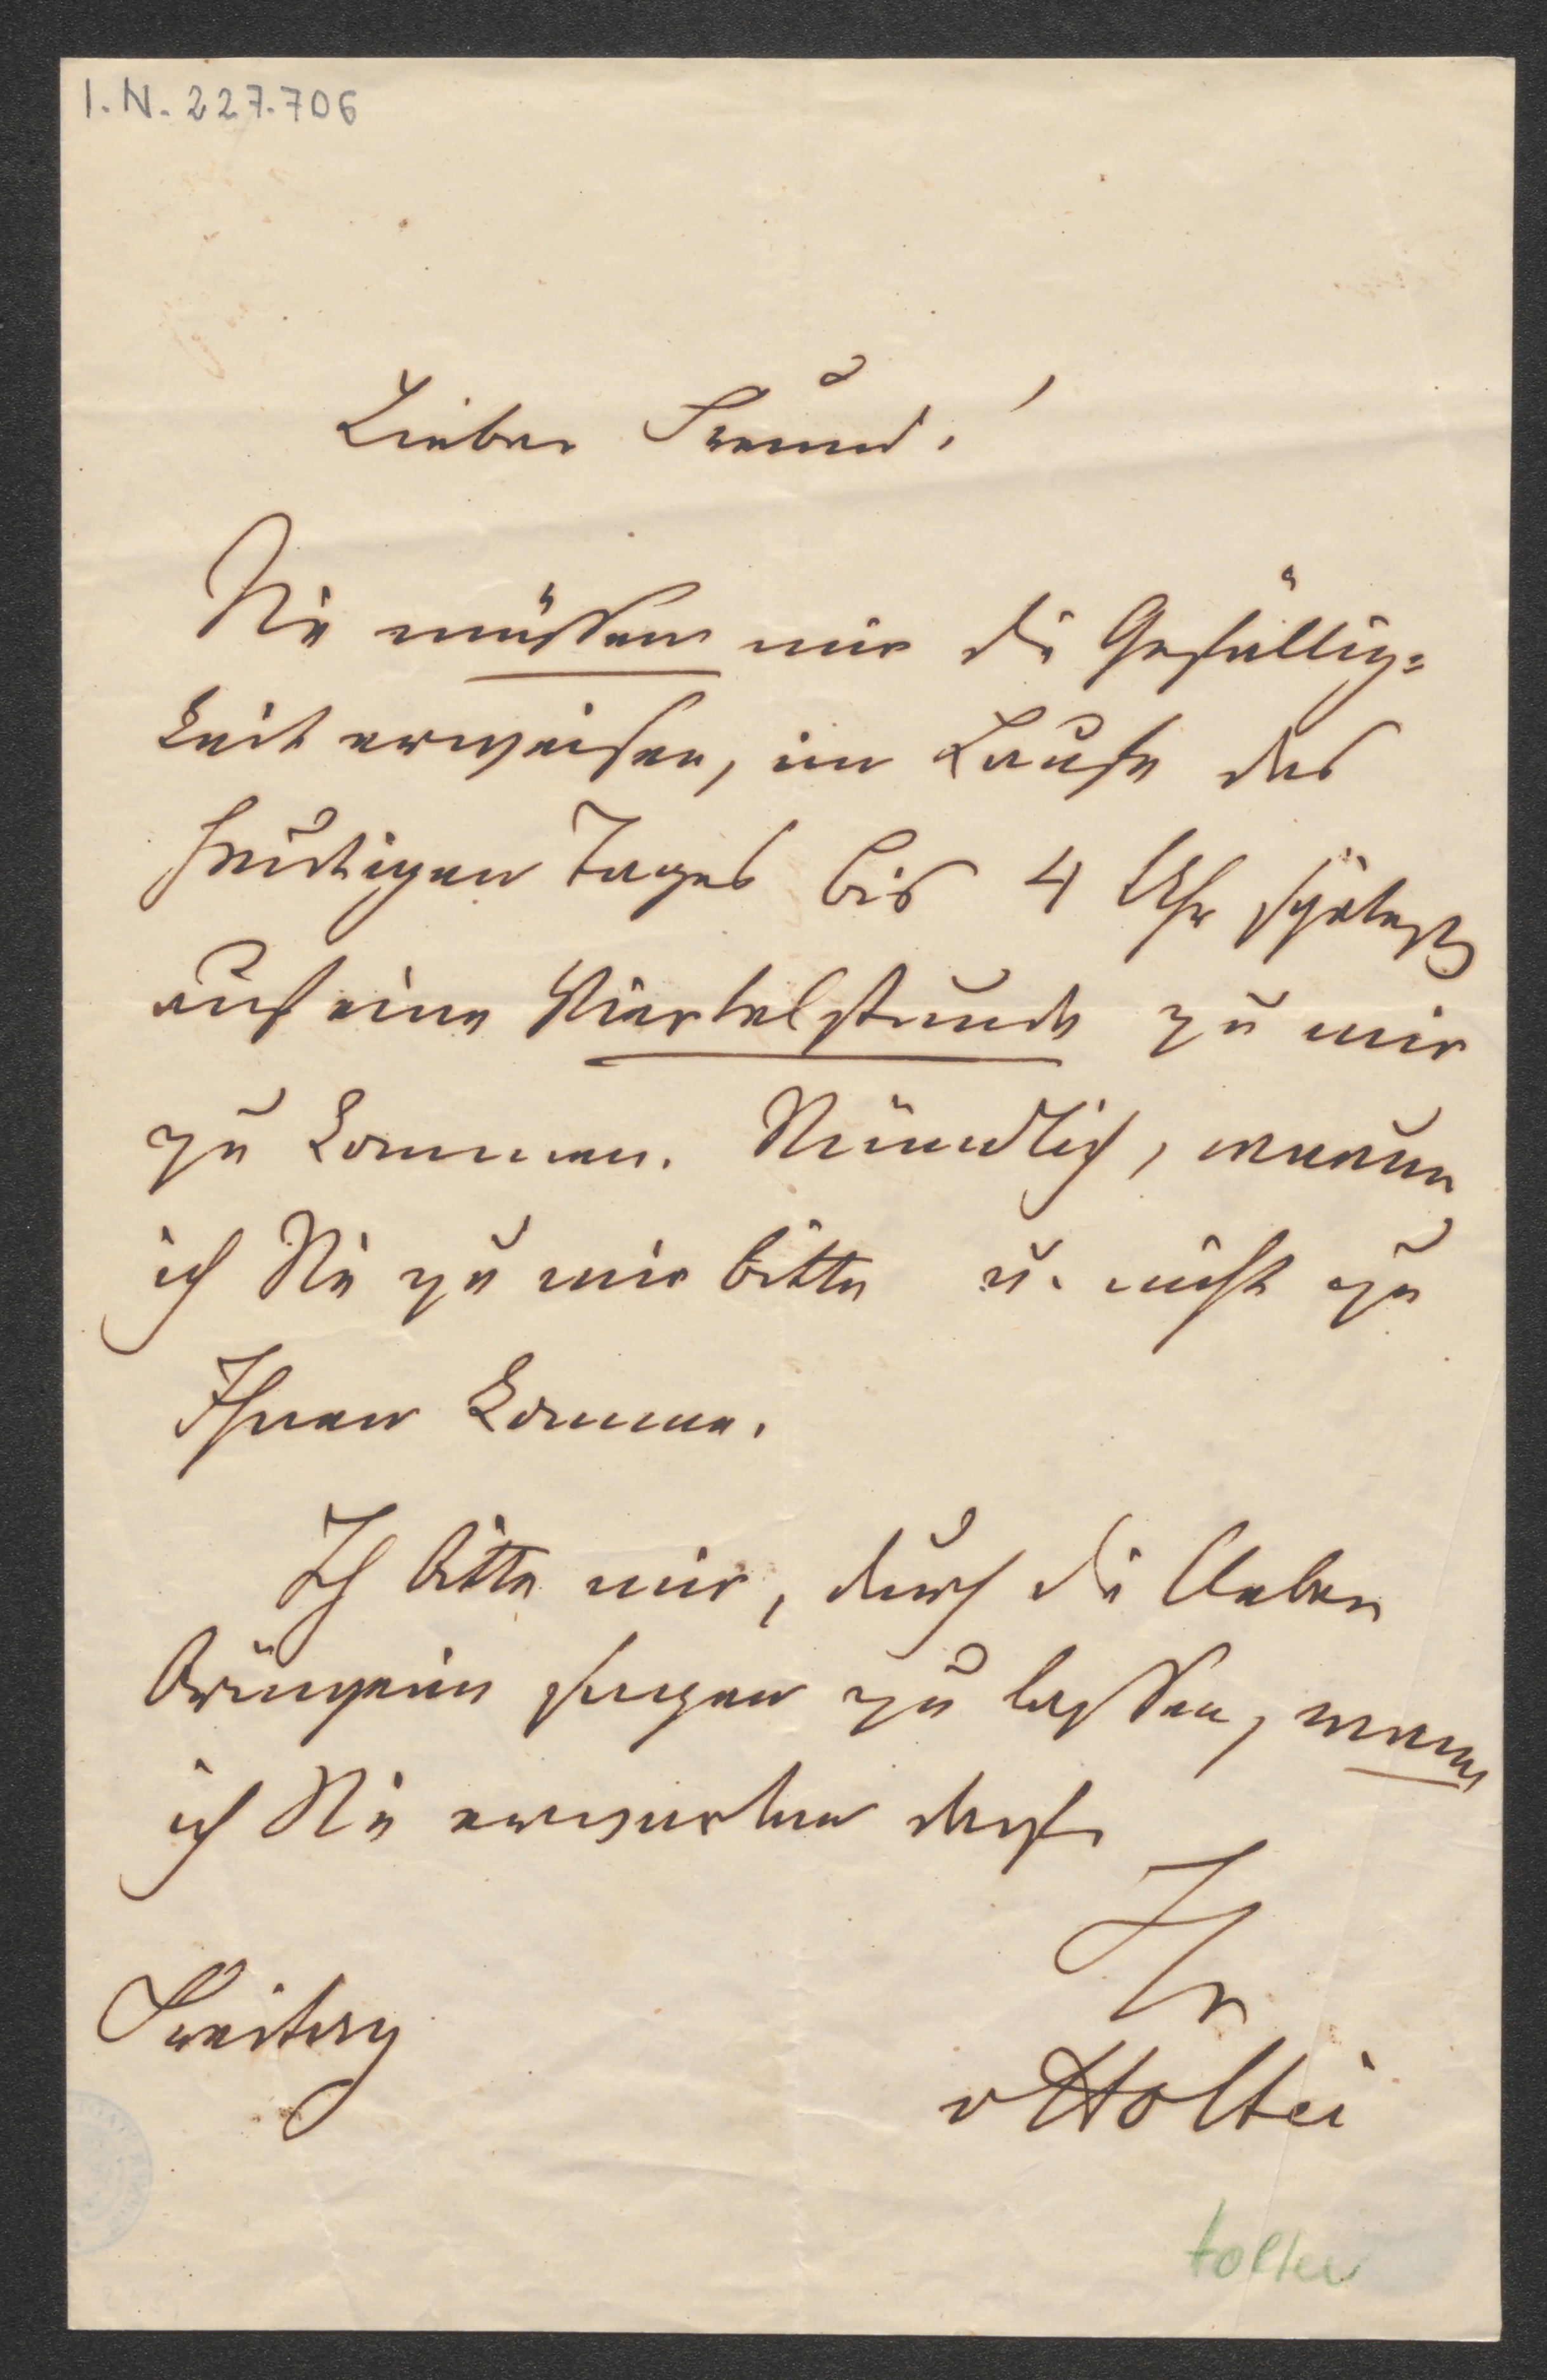 I.N. 227.706
Lieber Freund!
Sie müssen mir die Gefällig=
keit erweisen, im Laufe des
heutigen Tages bis 4 Uhr spätestens
auf eine Viertelstunde zu mir
zu kommen. Mündlich, warum
ich Sie zu mir bitte u. nicht zu
Ihnen komme.
Ich bitte mir, durch die Ueber
bringerin sagen zu lassen, wann
ich Sie erwarten darf.
Ihr
vHoltei
Freitag